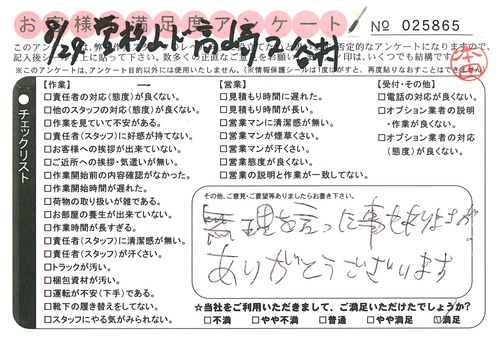 お客様満足度アンケート
№ 025865
8/29
このアンケートは、弊
記入後シールを上に貼って下さい。数多くの正直なご意見をお願い
印は、いくつでも結構です。
※このアンケートは、アンケート目的以外には使用いたしません。(※情報保護シールは1度はがすと、再度貼りなおすことはできません)
チェックリスト
【作業】
□責任者の対応(態度)が良くない。
□他のスタッフの対応(態度)が良くない。
□作業を見ていて不安がある。
□責任者(スタッフ)に好感が持てない。
□お客様への挨拶が出来ていない。
□ご近所への挨拶・気遣いが無い。
□作業開始前の内容確認がなかった。
□作業開始時間が遅れた。
□荷物の取り扱いが雑である。
□お部屋の養生が出来ていない。
□作業時間が長すぎる。
□責任者(スタッフ)に清潔感が無い。
□責任者(スタッフ)が汗くさい。
□トラックが汚い。
□梱包資材が汚い。
□運転が不安(下手)である。
□靴下の履き替えをしてない。
□スタッフにやる気がみられない。
【営業】
□見積もり時間に遅れた。
□見積もり時間が長い。
□営業マンに清潔感が無い。
□営業マンが煙草くさい。
□営業マンが汗くさい。
□営業態度が良くない。
□営業の説明と作業が一致してない。
【受付・その他】
□電話の対応が良くない。
□オプション業者の説明
・作業が良くない。
□オプション業者の対応
(態度)が良くない。
その他、ご意見・ご要望等ありましたらお書き下さい。
無理を言った事も
ありがとうございます
☆当社をご利用いただきまして、ご満足いただけたでしょうか?
□不満 □やや不満 □普通 □やや満足 ☑満足